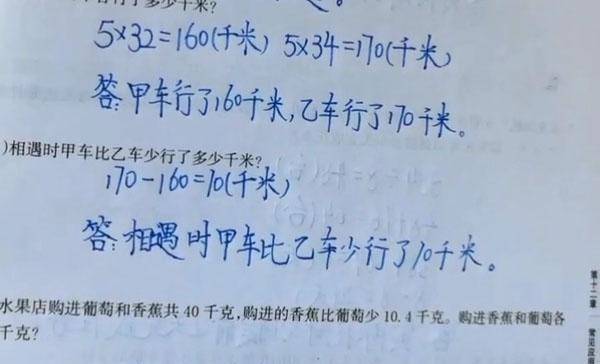 行了多少千米?
5×32=160(千米) 5×34=170(千米)
答:甲车行了160千米,乙车行了170千米。
)相遇时甲车比乙车少行了多少千米?
170-160=10(千米)
答:相遇时甲车比乙车少行了10千米。
水果店购进葡萄和香蕉共 40 千克,购进的香蕉比葡萄少 10.4 千克。购进香蕉和葡萄各
千克?
第十二章
常见应用